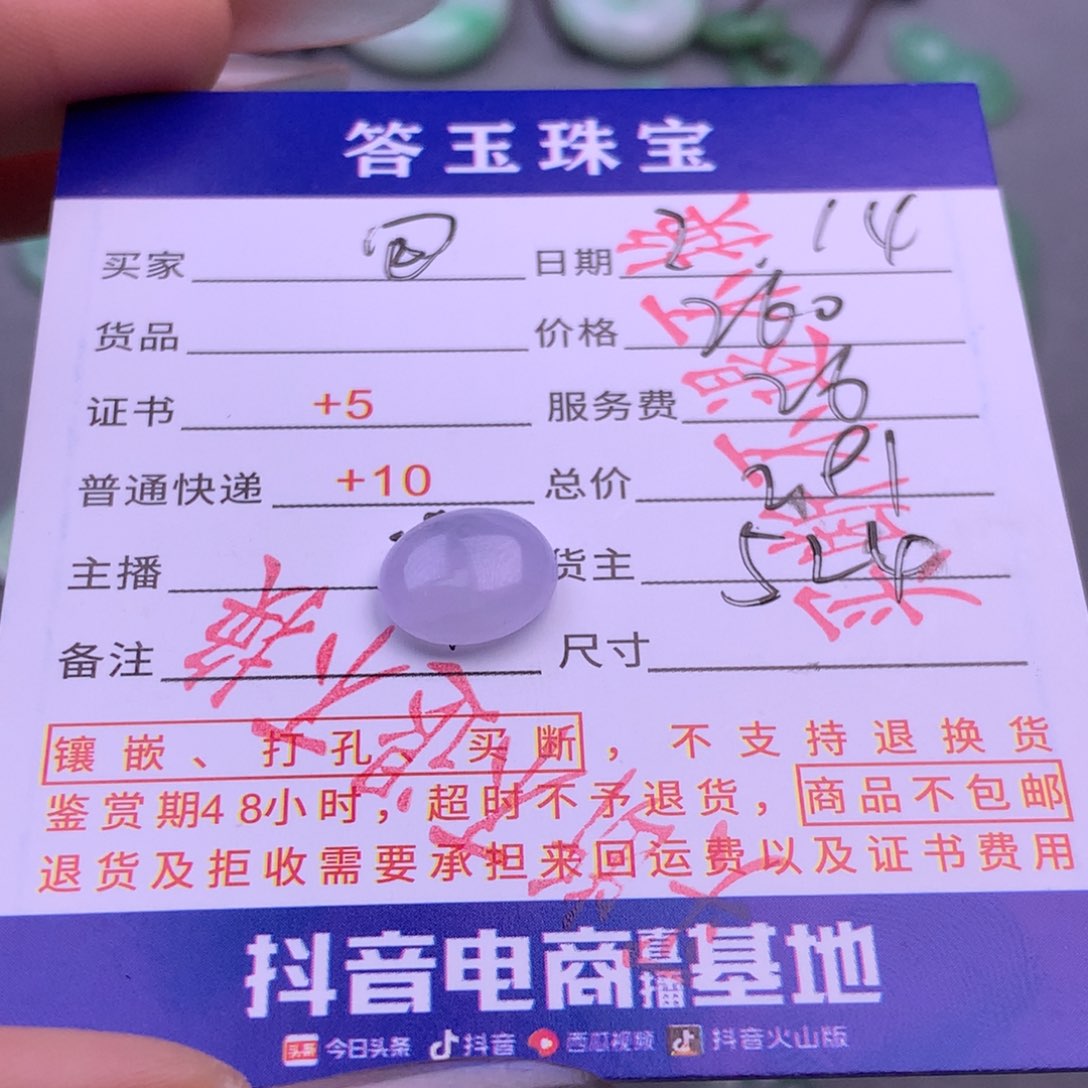 答玉珠宝
买家 日期 2.14
货品 价格 260
证书 +5 服务费 26
普通快递 +10 总价 291
主播 货主 524
备注 尺寸
镶嵌、打孔、买断，不支持退换货
鉴赏期48小时，超时不予退货，商品不包邮
退货及拒收需要承担来回运费以及证书费用
抖音电商直播基地
头条 今日头条 抖音 西瓜视频 抖音火山版